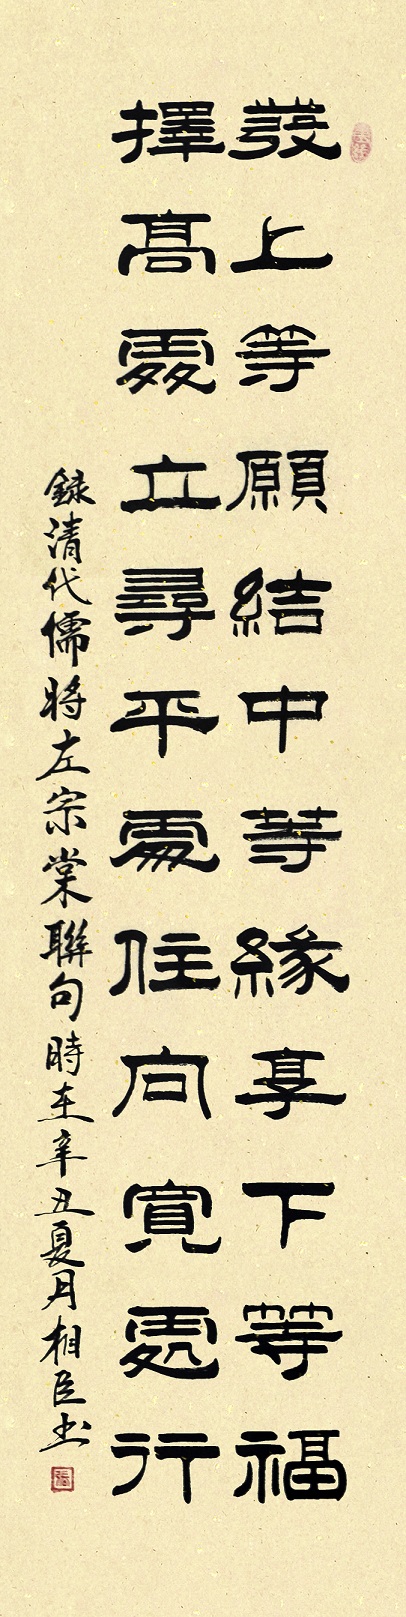 發上等願結中等緣享下等福
擇高處立尋平處住向寬處行
録清代儒將左宗棠聯句時在辛丑夏月相臣书